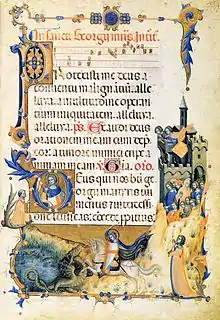 In sancti Georgii mris Introit.
Protexisti me deus a
conventu malignatiū. alle
luya. a multitudine operan
tium iniquitatem. alleluya.
alleluya. ps. Exaudi deus
orationem meam cum dep
cor: a timore inimici eripe a
nimam meam. Głia. oro.
Deus qui nos bti ge
orgii martiris tui
meritis et intercessi
one letificas: concede ppitius